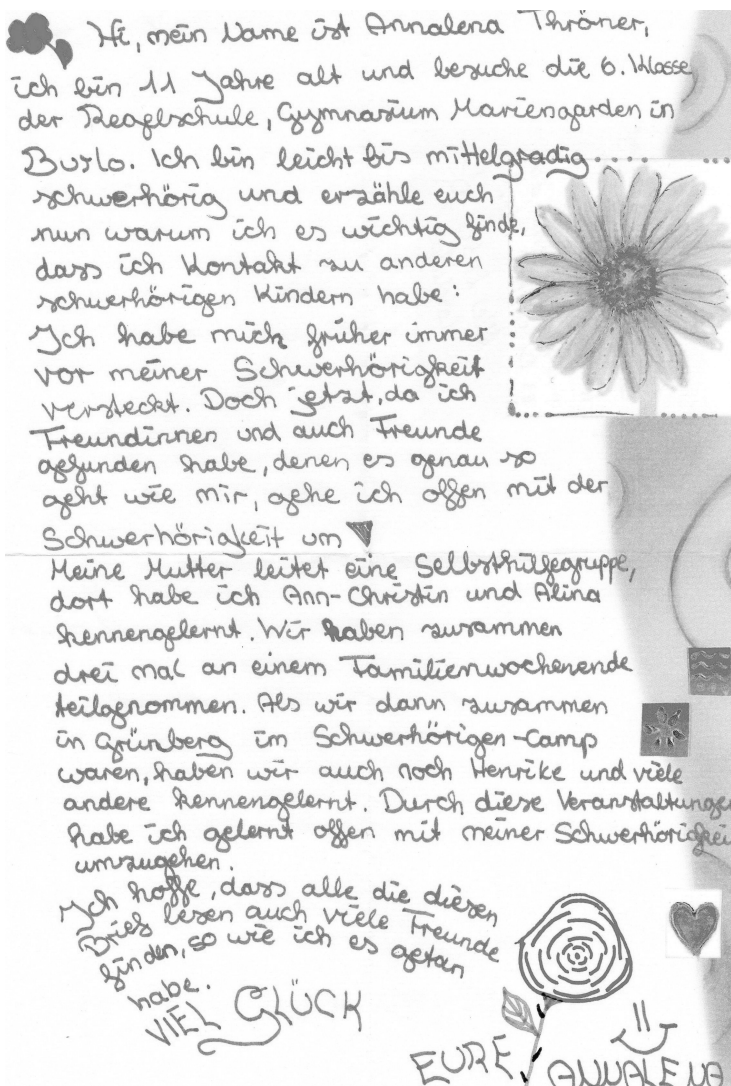 Hi, mein Name ist Annalena Thröner,
ich bin 11 Jahre alt und besuche die 6. Klasse
der Regelschule, Gymnasium Mariengarden in
Burlo. Ich bin leicht bis mittelgradig
schwerhörig und erzähle euch
nun warum ich es wichtig finde,
dass ich Kontakt zu anderen
schwerhörigen Kindern habe:
Ich habe mich früher immer
vor meiner Schwerhörigkeit
versteckt. Doch jetzt, da ich
Freundinnen und auch Freunde
gefunden habe, denen es genau so
geht wie mir, gehe ich offen mit der
Schwerhörigkeit um!
Meine Mutter leitet eine Selbsthilfegruppe,
dort habe ich Ann-Christin und Alina
kennengelernt. Wir haben zusammen
drei mal an einem Familienwochenende
teilgenommen. Als wir dann zusammen
in Grünberg im Schwerhörigen-Camp
waren, haben wir auch noch Henrike und viele
andere kennengelernt. Durch diese Veranstaltungen
habe ich gelernt offen mit meiner Schwerhörigkeit
umzugehen.
Ich hoffe, dass alle die diesen
Brief lesen auch viele Freunde
finden, so wie ich es getan
habe.
VIEL GLÜCK
EURE ANNALENA